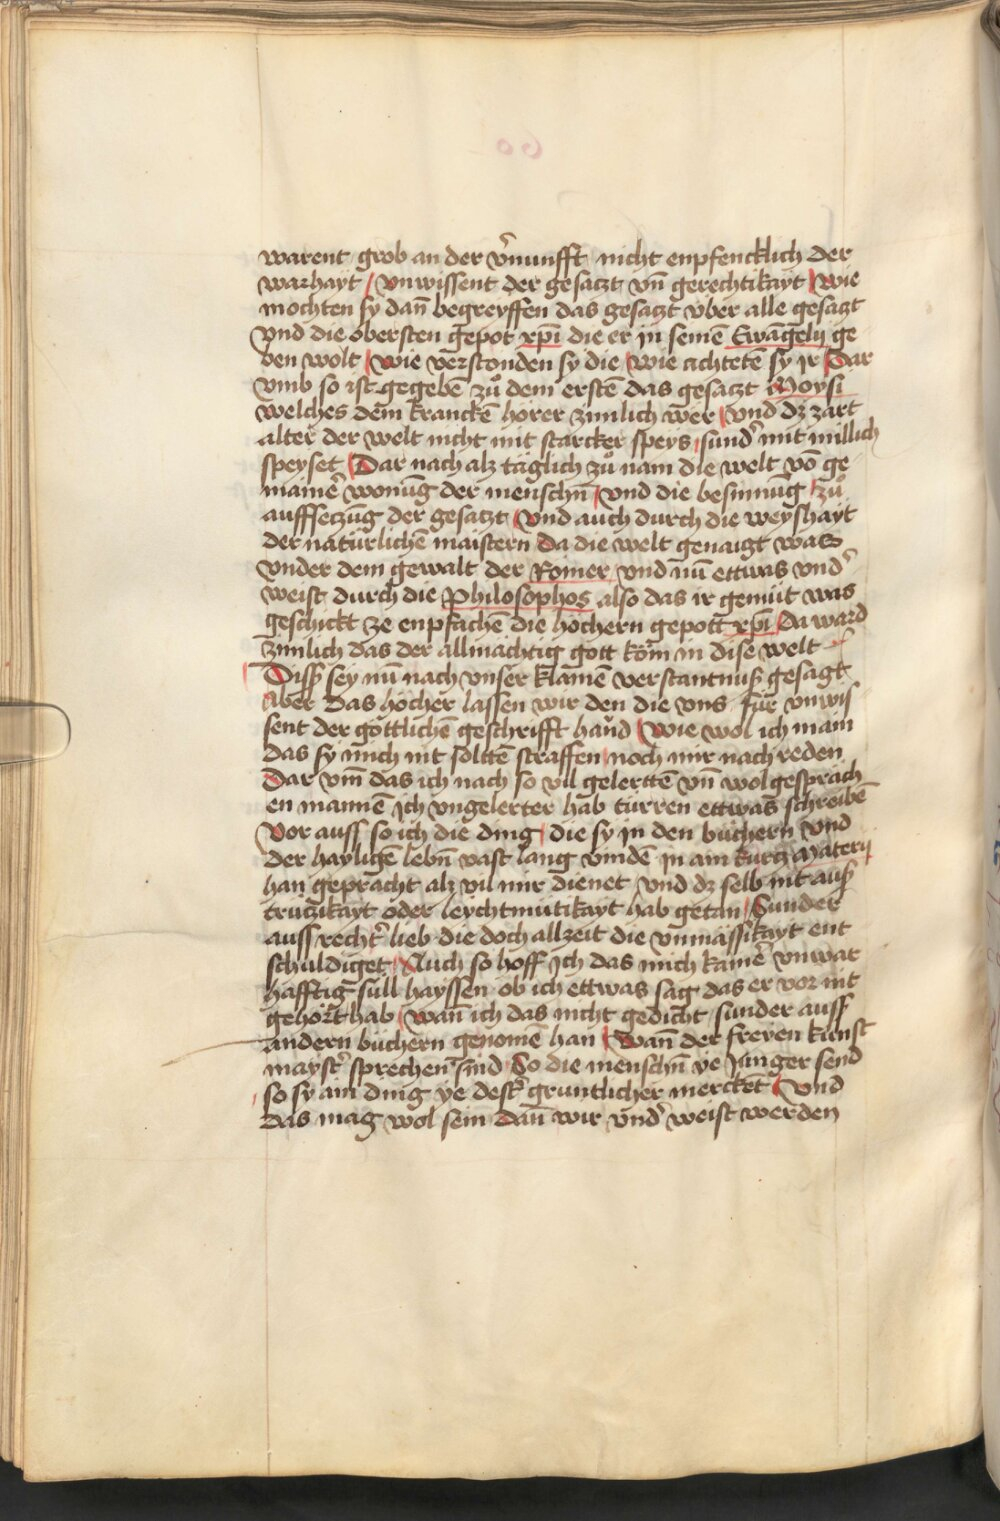 warent grob an der v̉nunfft nicht enpfencklich der
warhayt / vnwissent der gesaczt vn̄ gerechtikayt / wie
mochten sy dan̄ begreyffen das gesaczt v̈ber alle gesaczt
vnd die obersten gepot xp̄i die er in seinē Ewāgelij ge
ben wolt / wie verstonden sy die / wie achtetē sy ir / Dar
vmb so ist gegebē zů dem erstē das gesaczt Moysi
welches dem kranckē hörer zimlich wer / vnd dz zart
alter der welt nicht mit starcker speys / sund̉ mit millich
speyset / Dar nach alz täglich zů nam die welt vō ge
mainē wonūg der menschn̄ / vnd die besinnūg / zů
auffseczūg der gesaczt / vnd auch durch die weyshayt
der natürlichē maistern da die welt genaigt was
vnder dem gewalt der Romer vnd nū ettwas vnd̉
weist durch die Philosophos also das ir gemüt was
geschickt ze enpfachē die höchern gepott xp̄i Da ward
zimlich das der allmächtig gott köm in dise welt
Diss sey nū nach vnser klainē verstantnuß gesagt
Aber das höcher lassen wir den die vns für vnwis
sent der göttlichē geschrifft hand / wie wol ich main
das sy mich nit soltē straffen / noch mir nach reden
Dar vm̄ das ich nach so vil gelertē vn̄ wolgesprach
en mannē ich vngelerter hab türren ettwas schreibē
Vor auss so ich die ding / die sy in den büchern vnd
der hayligē lebn̄ vast lang vindē in ain kurcz matery
han gepracht alz vil mir dienet vnd dz selb nit auß
truczikayt oder leychtmütikayt hab getan / Sunder
auss recht̉ lieb die doch allzeit die vnmässikayt ent
schuldiget / Auch so hoff ich das mich kainē vnwar
hafftig süll hayssen ob ich ettwas sag das er vor nit
gehört hab / wan̄ ich das nicht gedicht / sunder auss
andern büchern genomē han / wan̄ der freyen kunst
mayst̉ sprechen sind So die menschn̄ ye iunger send
so sy ain ding ye dest̉ gruntlicher merckēt / vnd
das mag wol sein dan̄ wir vnd̉ weist werden